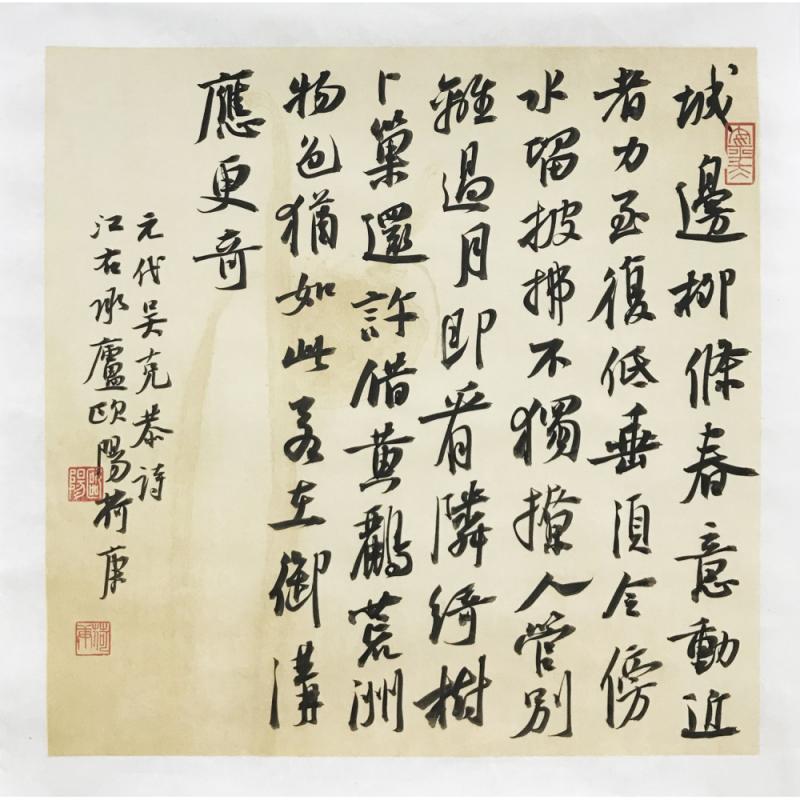 城邊柳條春意動近
者力至復低垂須令傍
水留披拂不獨撩人管別
離過月即看隣綺樹
卜巢還許借黄鸝芳洲
物色猶如此若在御溝
應更奇
元代吴克恭詩
江右承廬歐陽荷庚
歐陽
荷庚